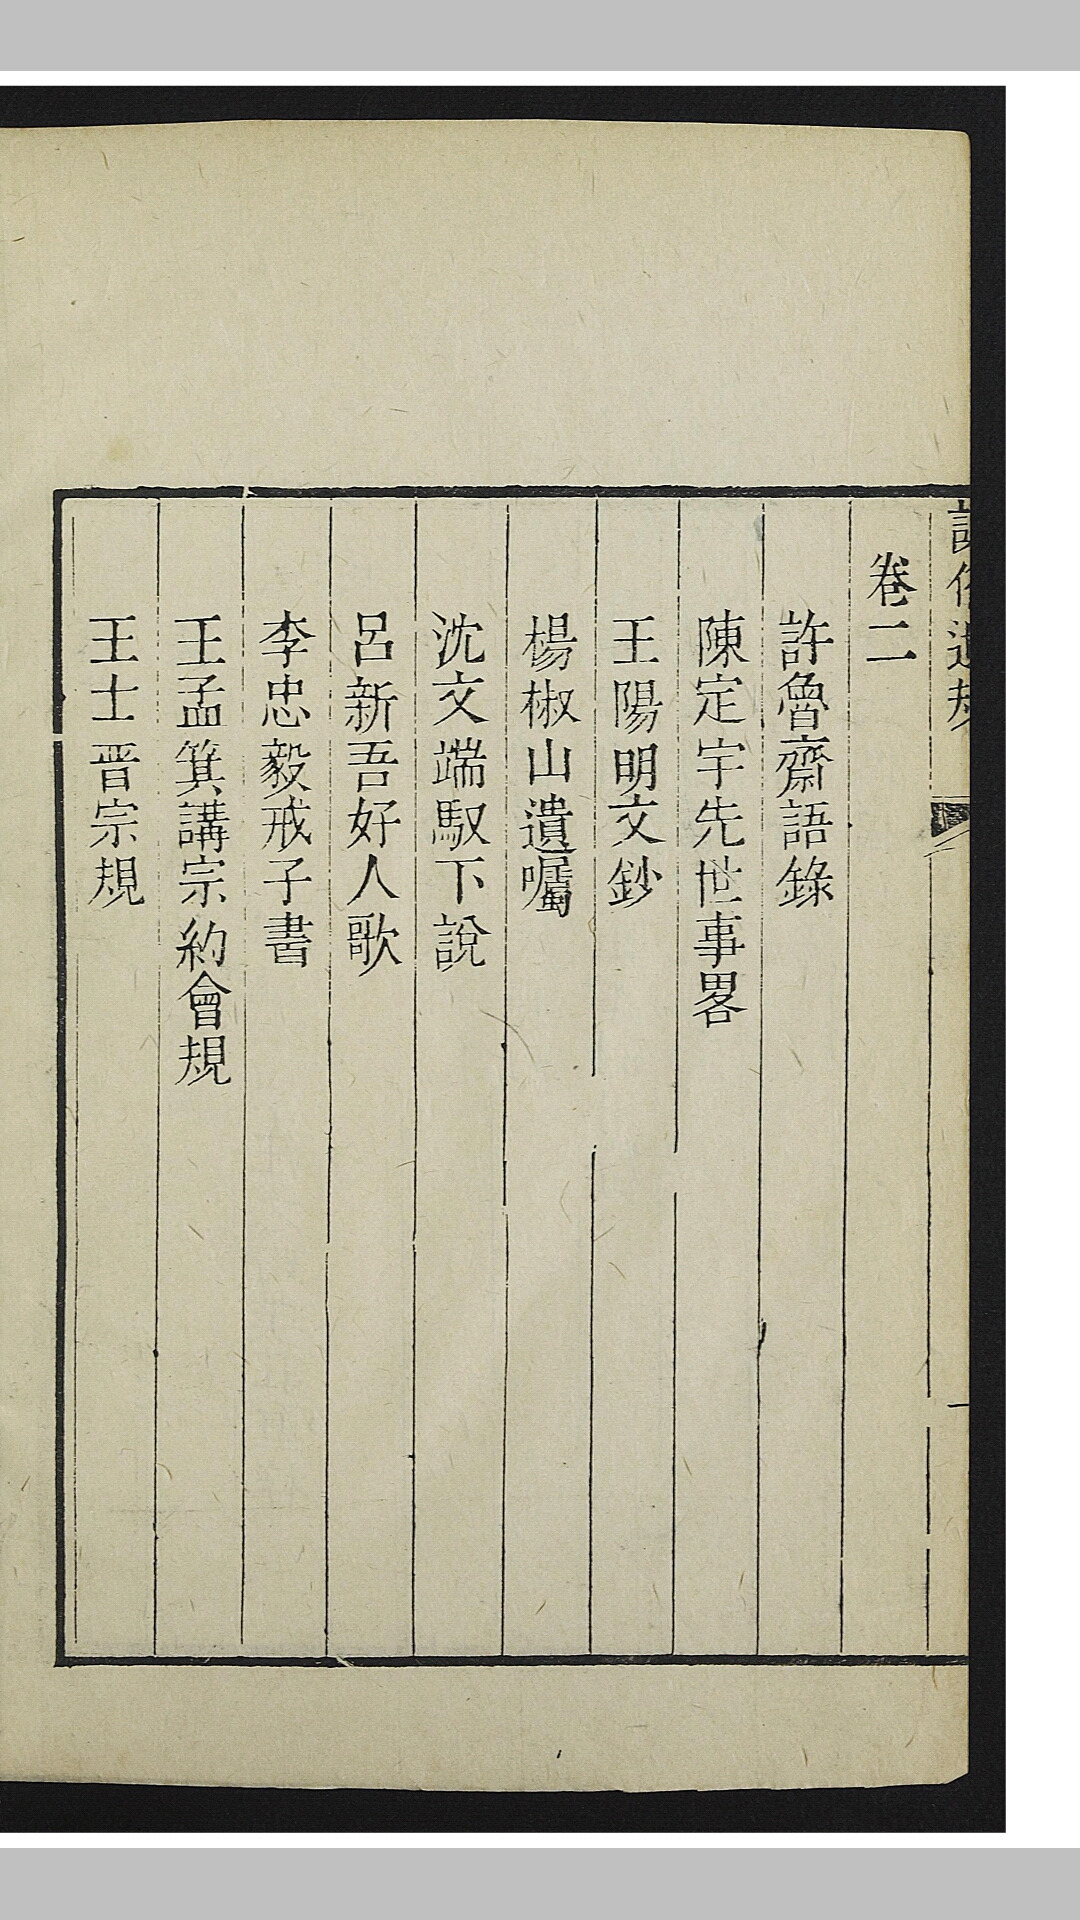 卷二
許魯齋語錄
陳定宇先世事畧
王陽明文鈔
楊椒山遺囑
沈文端馭下說
呂新吾好人歌
李忠毅戒子書
王孟箕講宗約會規
王士晋宗規